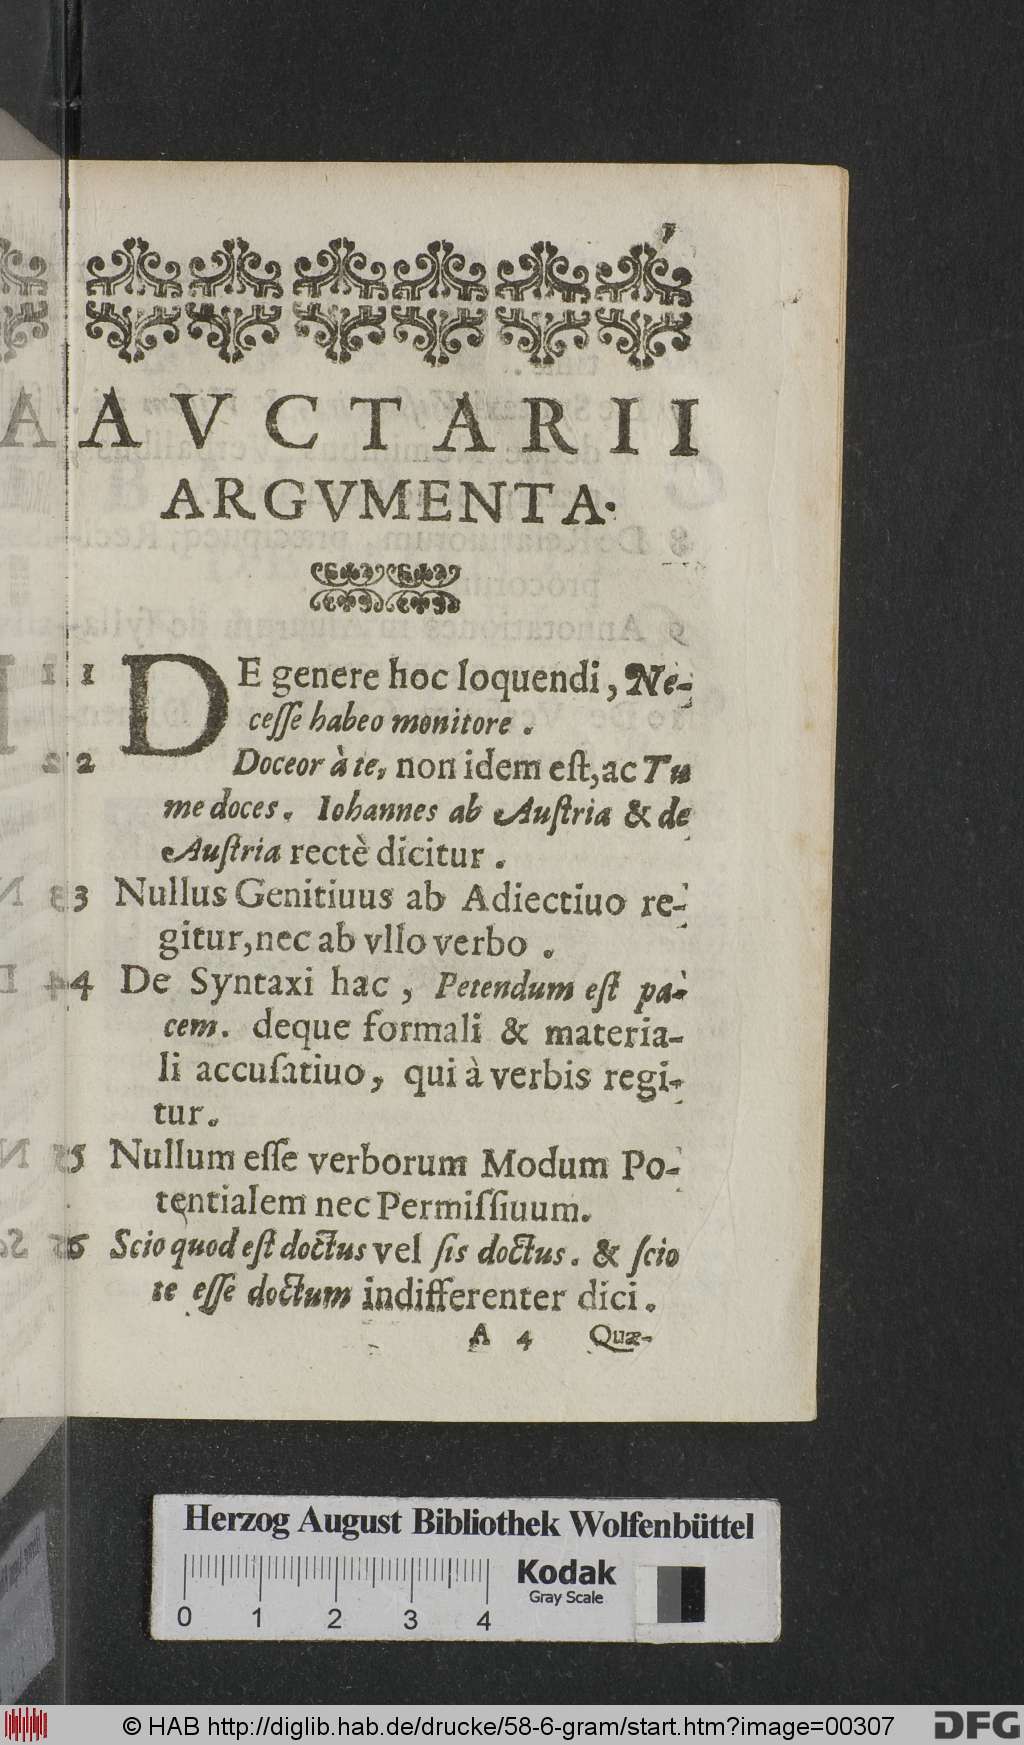 7
AVCTARII
ARGVMENTA.
1 DE genere hoc loquendi, Ne-
cesse habeo monitore.
2 Doceor à te, non idem est, ac Tu
me doces. Iohannes ab Austria & de
Austria rectè dicitur.
3 Nullus Genitiuus ab Adiectiuo re-
gitur, nec ab vllo verbo.
4 De Syntaxi hac, Petendum est pa-
cem. deque formali & materia-
li accusatiuo, qui à verbis regi-
tur.
5 Nullum esse verborum Modum Po-
tentialem nec Permissiuum.
6 Scio quod est doctus vel sis doctus. & scio
te esse doctum indifferenter dici.
A 4 Quæ-
Herzog August Bibliothek Wolfenbüttel
Kodak
Gray Scale
0 1 2 3 4
© HAB http://diglib.hab.de/drucke/58-6-gram/start.htm?image=00307
DFG